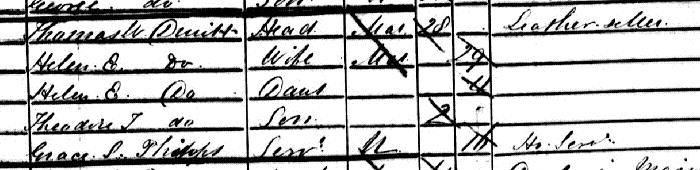 George do Son
Thomas W Head Mar 28 Leather seller
Helen E. Do Wife Mar 29
Helen E Do Daur 4
Theodore T do Son 2
Grace S. Phipps Servt U 18 Ho. Servt